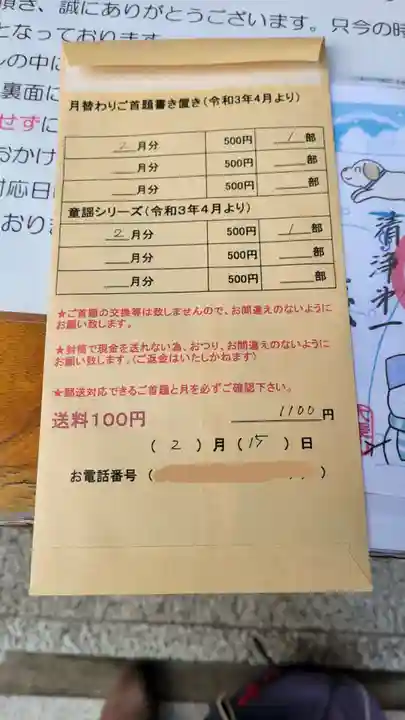 頂き、誠にありがとうございます。只今の時
となっております
しの中に
裏面に
せずに
おかけ
対応日
おりま
月替わりご首題書き置き(令和3年4月より)
2月分 500円 1部
月分 500円 部
月分 500円 部
童謡シリーズ(令和3年4月より)
2月分 500円 1部
月分 500円 部
月分 500円 部
★ご首題の交換等は致しませんので、お間違えのないように
お願い致します。
★封筒で現金を送れない為、おつり、お間違えのないように
お願い致します。(ご返金はいたしかねます)
★郵送対応できるご首題と月を必ずご確認下さい。
送料100円 1100円
(2)月(15)日
お電話番号( )
清浄第一